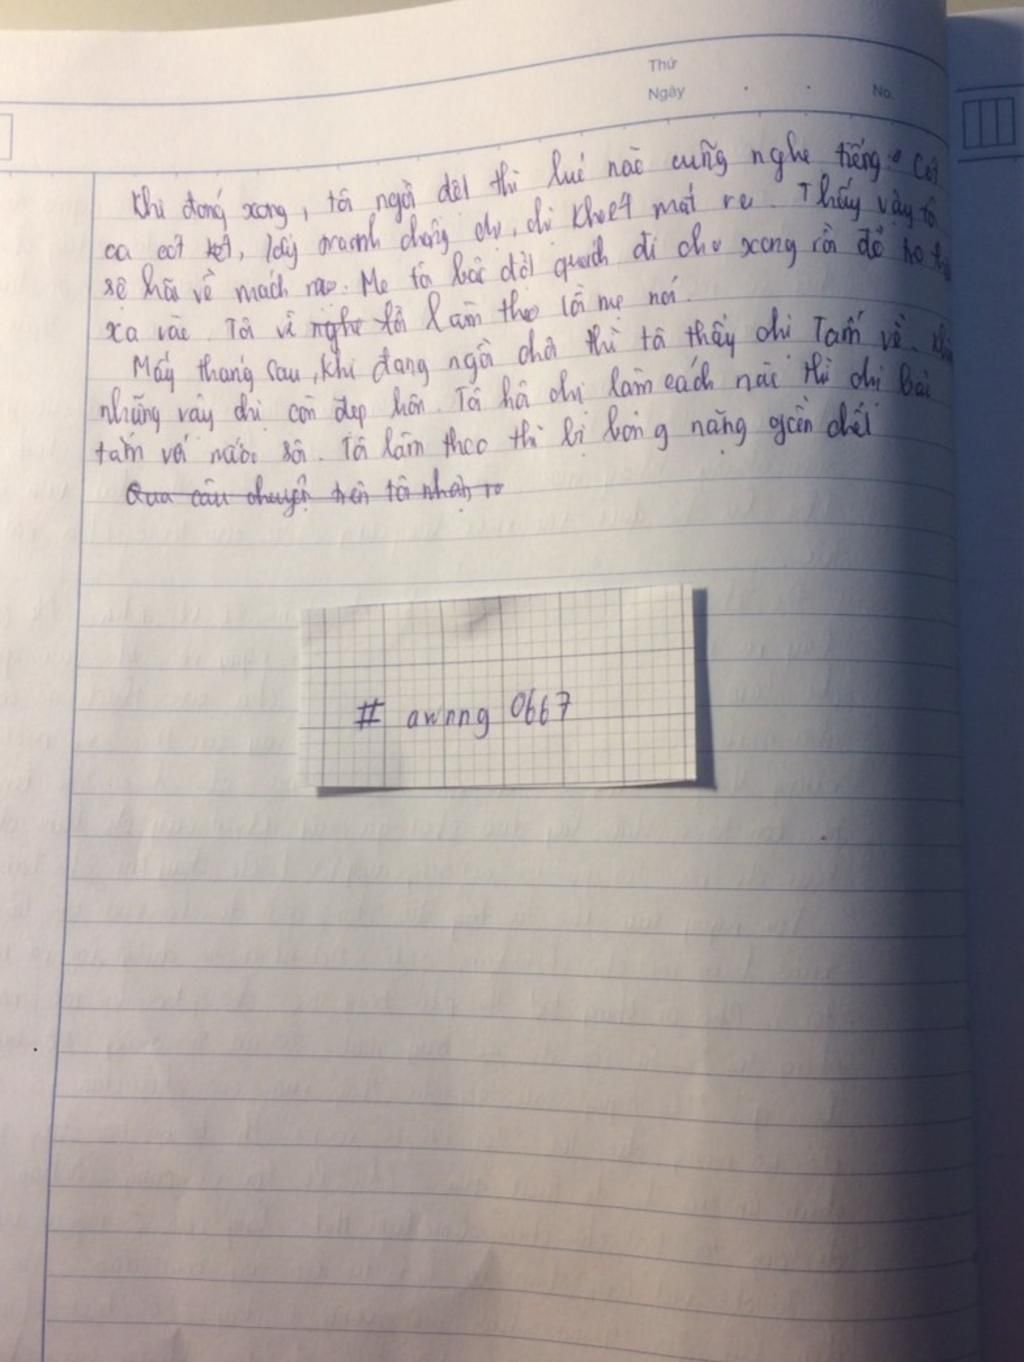 Thứ
Ngày . . No.
Khi đóng xong, tôi ngồi dệt thì lúc nào cũng nghe tiếng: Cót
ca cót két, lấy tranh chồng chị, chị khoét mắt ra. Thấy vậy tô
sợ hãi về mách mẹ. Mẹ tôi bảo đốt quách đi cho xong rồi đổ tro
xa vào. Tôi về nghe lời làm theo lời mẹ nói.
Mấy tháng sau, khi đang ngồi chơi thì tô thấy chị Tấm về.
những vậy chị còn đẹp hơn. Tô hỏi chị làm cách nào thì chị bảo
tắm với nước sôi. Tô làm theo thì bị bỏng nặng gần chết
Qua câu chuyện trên tô nhận ra
# awnng 0667